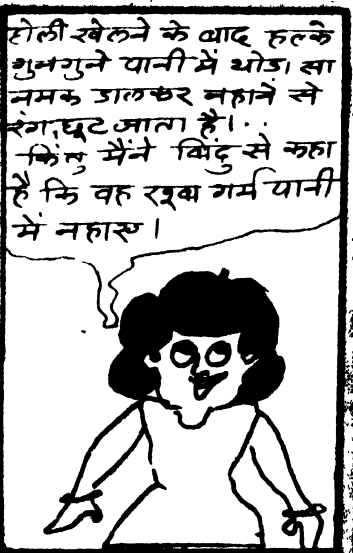 होली खेलने के बाद हल्के
गुनगुने पानी में थोड़ा सा
नमक डालकर नहाने से
रंग छूट जाता है।..
किंतु मैंने बिंदु से कहा
है कि वह खूब गर्म पानी
में नहाए।